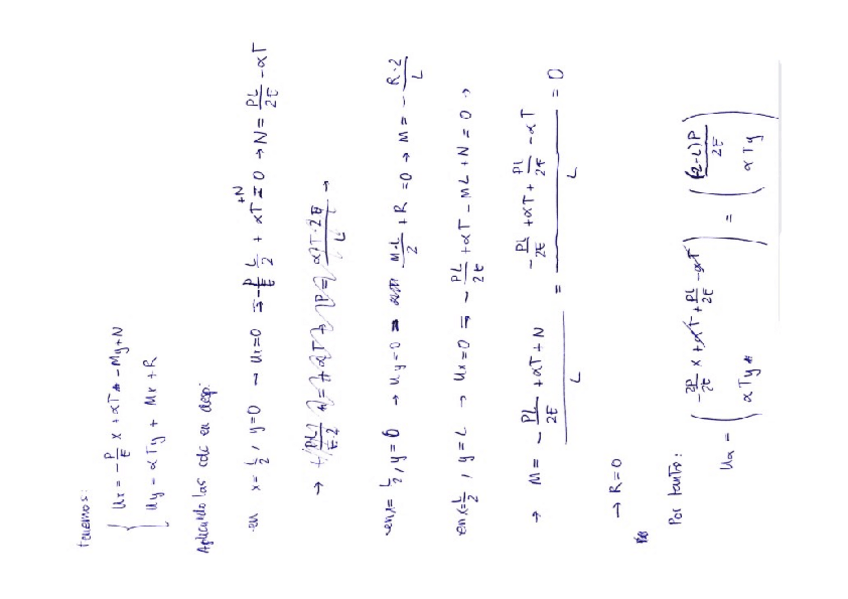 tenemos:
{ Ux = -P/E x + αT - My + N
Uy = αTy + Mx + R
Aplicando las cdc en desp:
en x = L/2, y=0 → Ux=0 ⇒ -P/E L/2 + αT +N = 0 → N = PL/2E - αT
en x= L/2, y=0 → Uy=0 ⇒ M·L/2 + R = 0 → M = - R·2/L
en x=L/2, y=L → Ux=0 ⇒ - PL/2E + αT - ML + N = 0 →
→ M = (- PL/2E + αT + N)/L = (- PL/2E + αT + PL/2E - αT)/L = 0
→ R=0
Por tanto:
Ua = ( -2P/2E x + αT + PL/2E - αT ; αTy ) = ( (2-L)P/2E ; αTy )